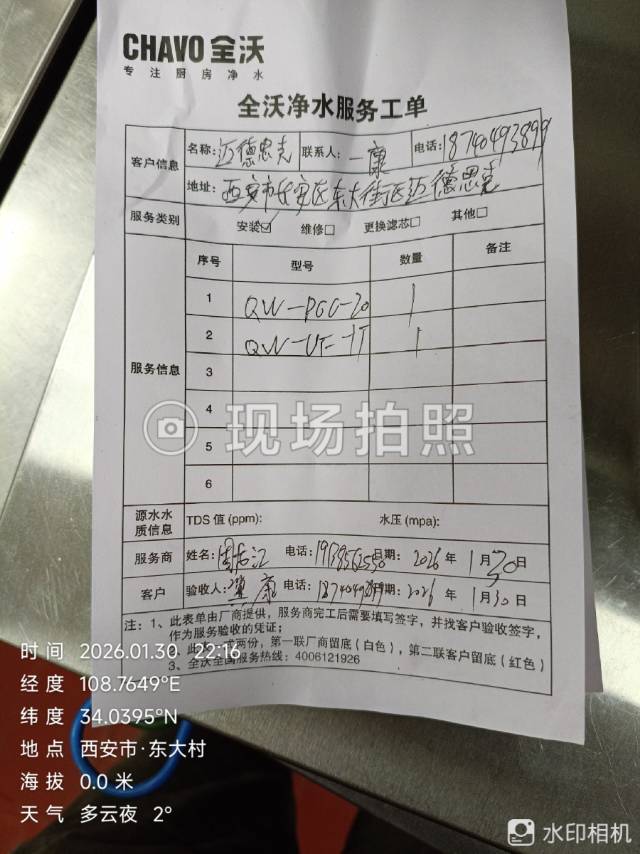 CHAVO 全沃
专注厨房净水
全沃净水服务工单
客户信息
名称: 迈德思克 联系人: 一康 电话: 18740493899
地址: 西安市长安区东大街区迈德思克
服务类别 安装☑ 维修□ 更换滤芯□ 其他□
服务信息
序号 型号 数量 备注
1 QW-PGC-20 1
2 QW-UF-1T 1
3
4
5
6
现场拍照
源水水质信息 TDS 值 (ppm): 水压 (mpa):
服务商 姓名: 电话: 日期: 2026 年 1 月 30 日
客户 验收人: 康 电话: 日期: 2026 年 1 月 30 日
注: 1、此表单由厂商提供,服务商完工后需要填写签字,并找客户验收签字,
作为服务验收的凭证;
2、此表一式两份,第一联厂商留底(白色),第二联客户留底(红色)
3、全沃全国服务热线: 4006121926
时间 2026.01.30 22:16
经度 108.7649°E
纬度 34.0395°N
地点 西安市·东大村
海拔 0.0 米
天气 多云夜 2°
水印相机